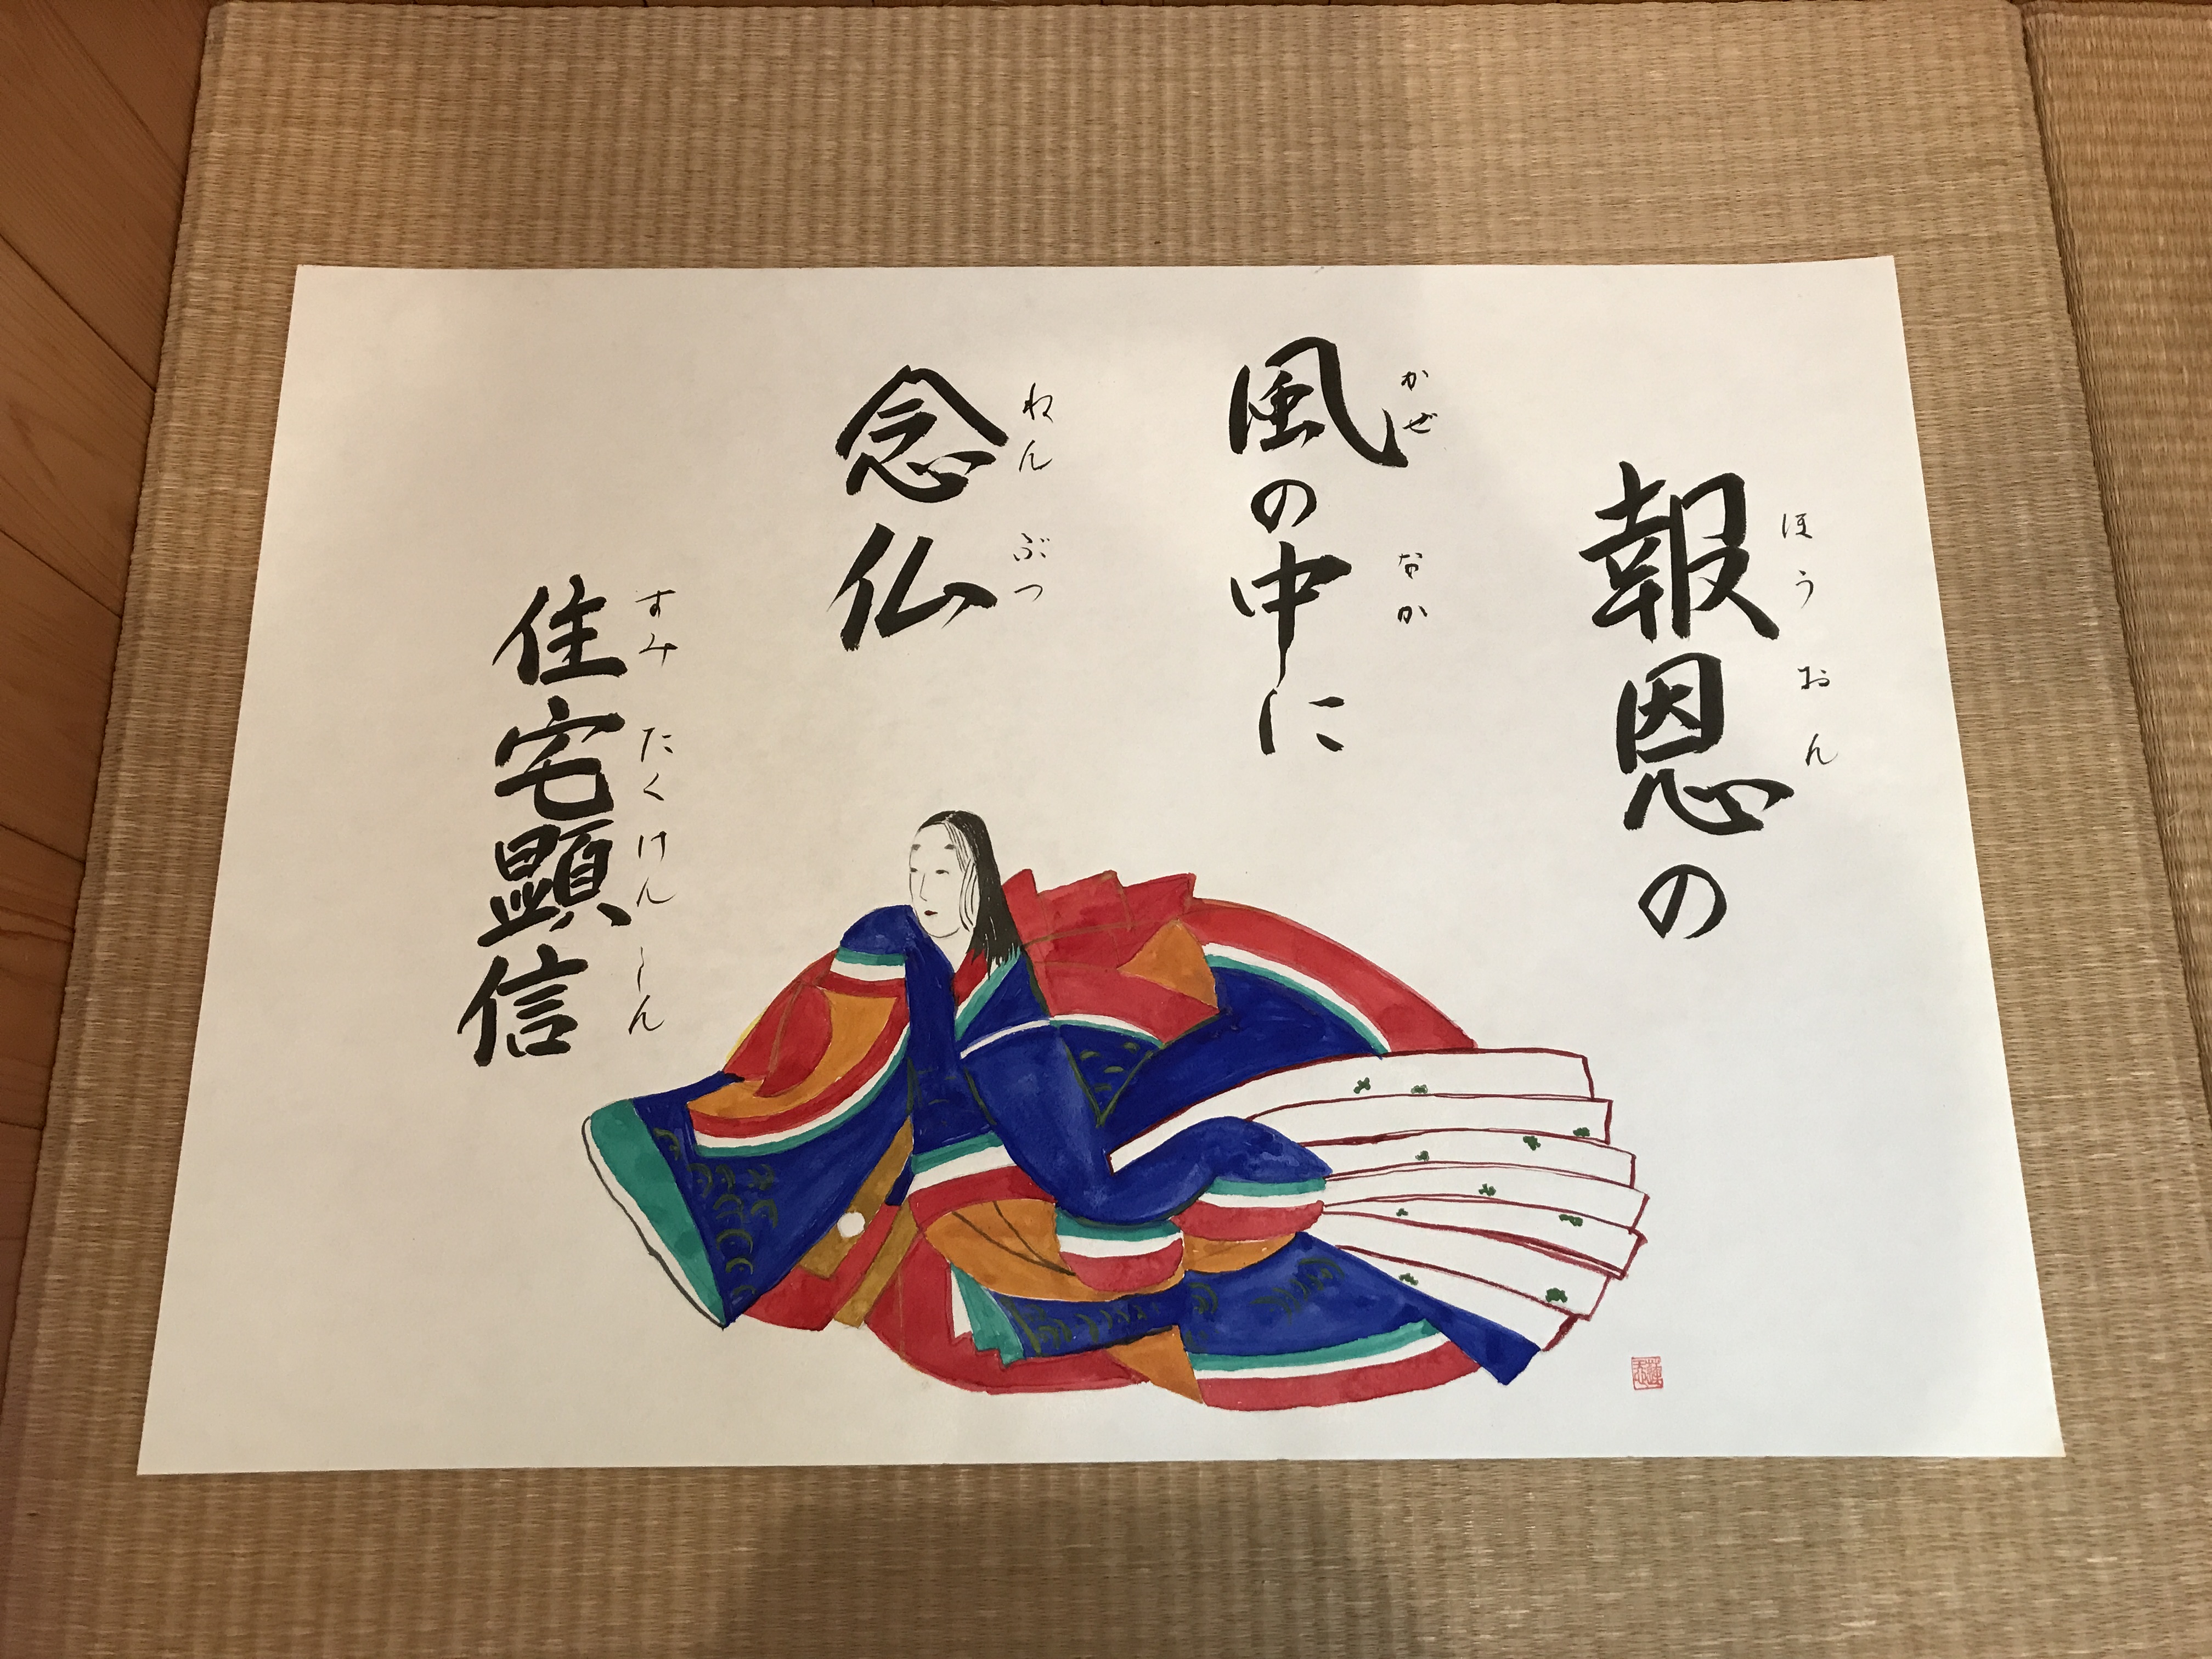 報恩の
ほうおん
風の中に
かぜ なか
念仏
ねんぶつ
住宅顕信
すみたくけんしん